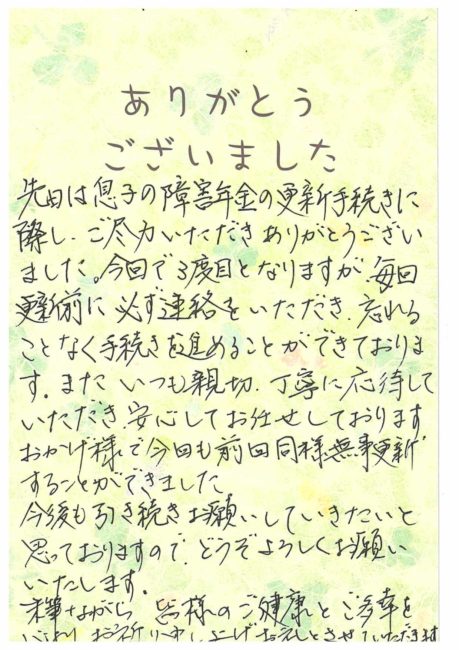 ありがとう
ございました
先日は息子の障害年金の更新手続きに
際し、ご尽力いただきありがとうござい
ました。今回で3度目となりますが、毎回
更新前に必ず連絡をいただき、忘れる
ことなく手続きを進めることができておりま
す。また いつも親切、丁寧に応待して
いただき、安心してお任せしております
おかげ様で今回も前回同様、無事更新
することができました
今後も引き続きお願いしていきたいと
思っておりますので、どうぞよろしくお願い
いたします。
末筆ながら 皆様のご健康とご多幸を
お祈り申し上げお礼とさせていただきます